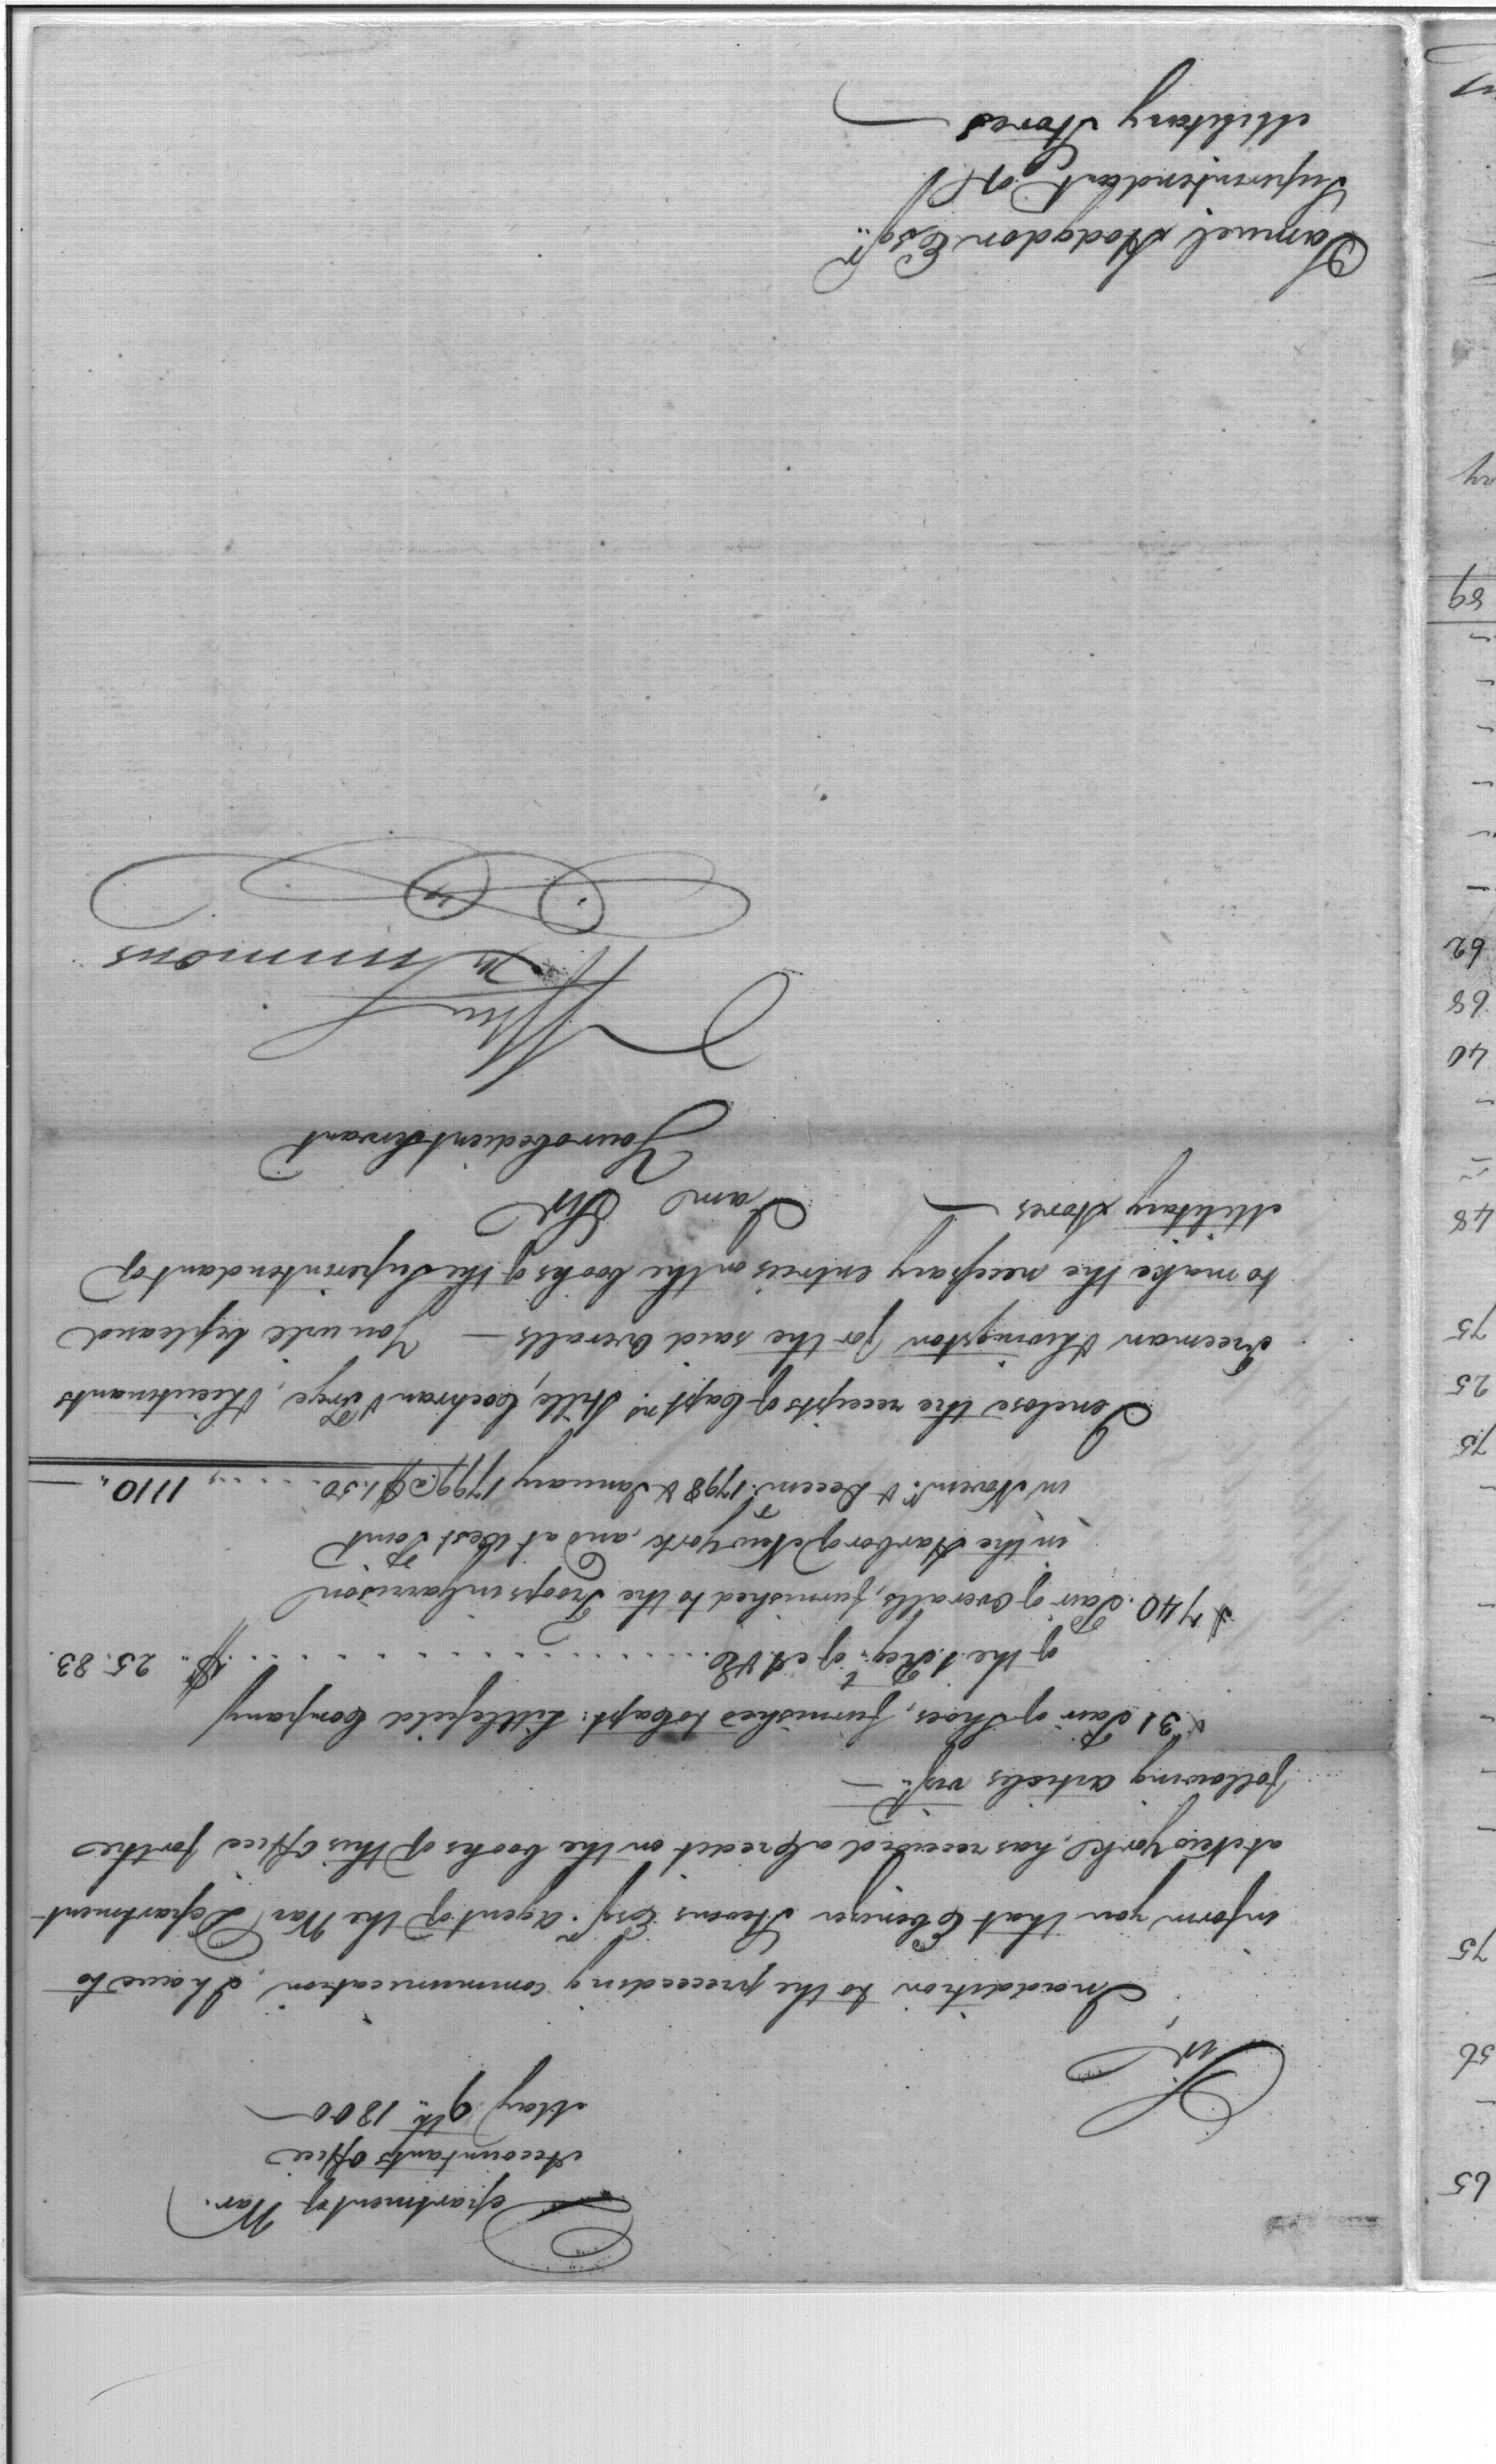 Department of War.
Accountants Office
May 9th. 1800
Sir
In addition to the preceeding communication, I have to
inform you that Ebenezer Stevens Esqr. Agent of the War Department
at New York, has received a Credit on the books of this Office for the
following articles vizt. —
31 Pair of Shoes, furnished to Capt: Littlefield Company
of the 1 Regt. of A & E . . . . $ 25.83
740. Pair of Overalls, furnished to the Troops in Garrison
in the Harbor of New York, and at West Point
in Novemr. & Decemr. 1798 & January 1799 @ $1.50 . . . . 1110. —
I enclose the receipts of Captns. Stille, Cochran & Frye, & Lieutenants
Freeman & Livingston for the said Overalls — You will be pleased
to make the necessary entries on the books of the Superintendant of
Military Stores —
I am Sir
Your obedient Servant
Wm Simmons
Samuel Hodgdon Esqr.
Superintendant of
Military Stores —
65
56
75
75
25
75
48
40
68
62
89